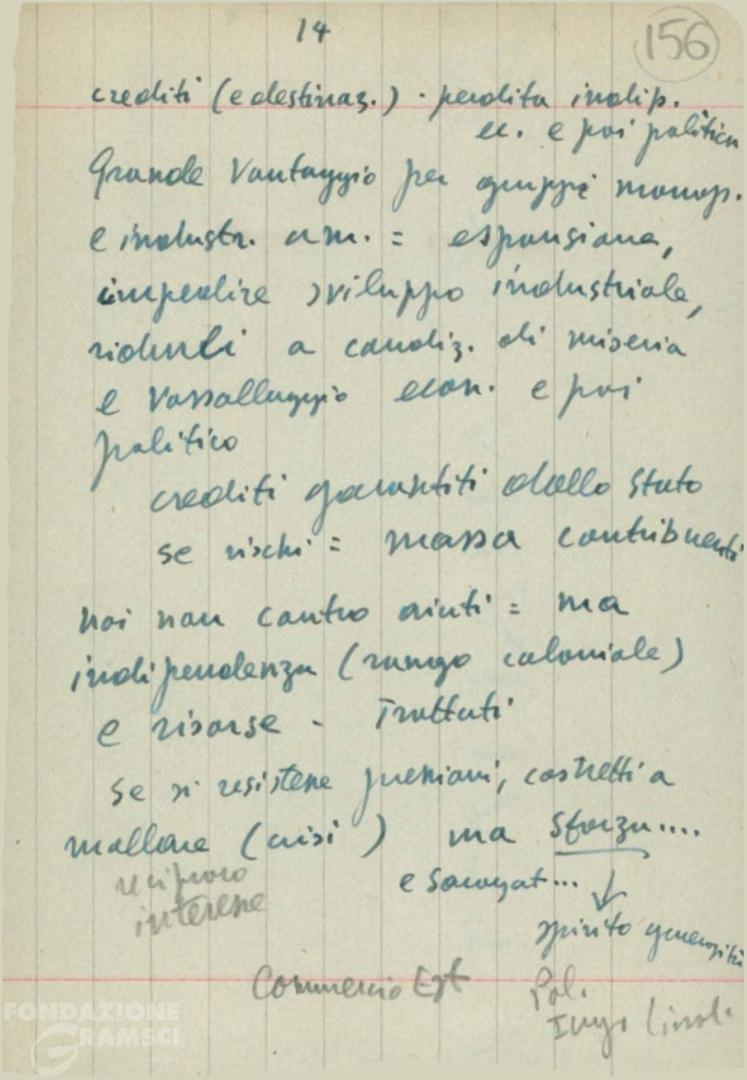 14
156
crediti (e destinaz.) - perdita indip.
ec. e poi politica
Grande Vantaggio per gruppi monop.
e industr. am. = espansione,
impedire sviluppo industriale,
ridurli a condiz. di miseria
e vassallaggio econ. e poi
politico
crediti garantiti dallo Stato
se rischi = massa contribuenti
noi non contro aiuti = ma
indipendenza (rango coloniale)
e risorse - Trattati
se si resistesse pressioni, costretti a
mollare (crisi) ma Sforza....
e Saragat...
reciproco
interesse
spirito generosità
Commercio Est
Pol.
FONDAZIONE
GRAMSCI
onlus